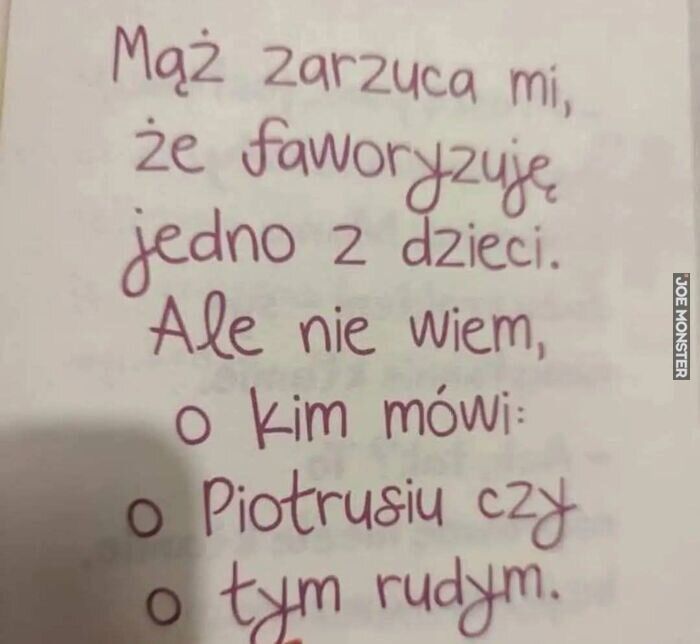 Mąż zarzuca mi,
że faworyzuję
jedno z dzieci.
Ale nie wiem,
o kim mówi:
o Piotrusiu czy
o tym rudym.
JOE MONSTER